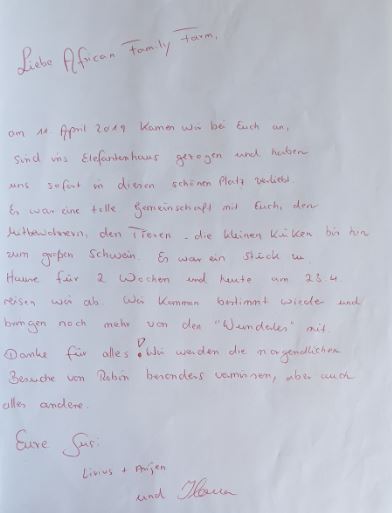 Liebe African Family Farm,
am 11. April 2019 kamen wir bei Euch an,
sind ins Elefantenhaus gezogen und haben
uns sofort in diesen schönen Platz verliebt.
Es war eine tolle Gemeinschaft mit Euch, den
Mitbewohnern, den Tieren - die kleinen Küken bis hin
zum großen Schwein. Es war ein Stück zu
Hause für 2 Wochen und heute am 23.4.
reisen wir ab. Wir kommen bestimmt wieder und
bringen noch mehr von den "Wundeles" mit.
Danke für alles! Wir werden die morgendlichen
Besuche von Robin besonders vermissen, aber auch
alles andere.
Eure Susi
Livius +
und